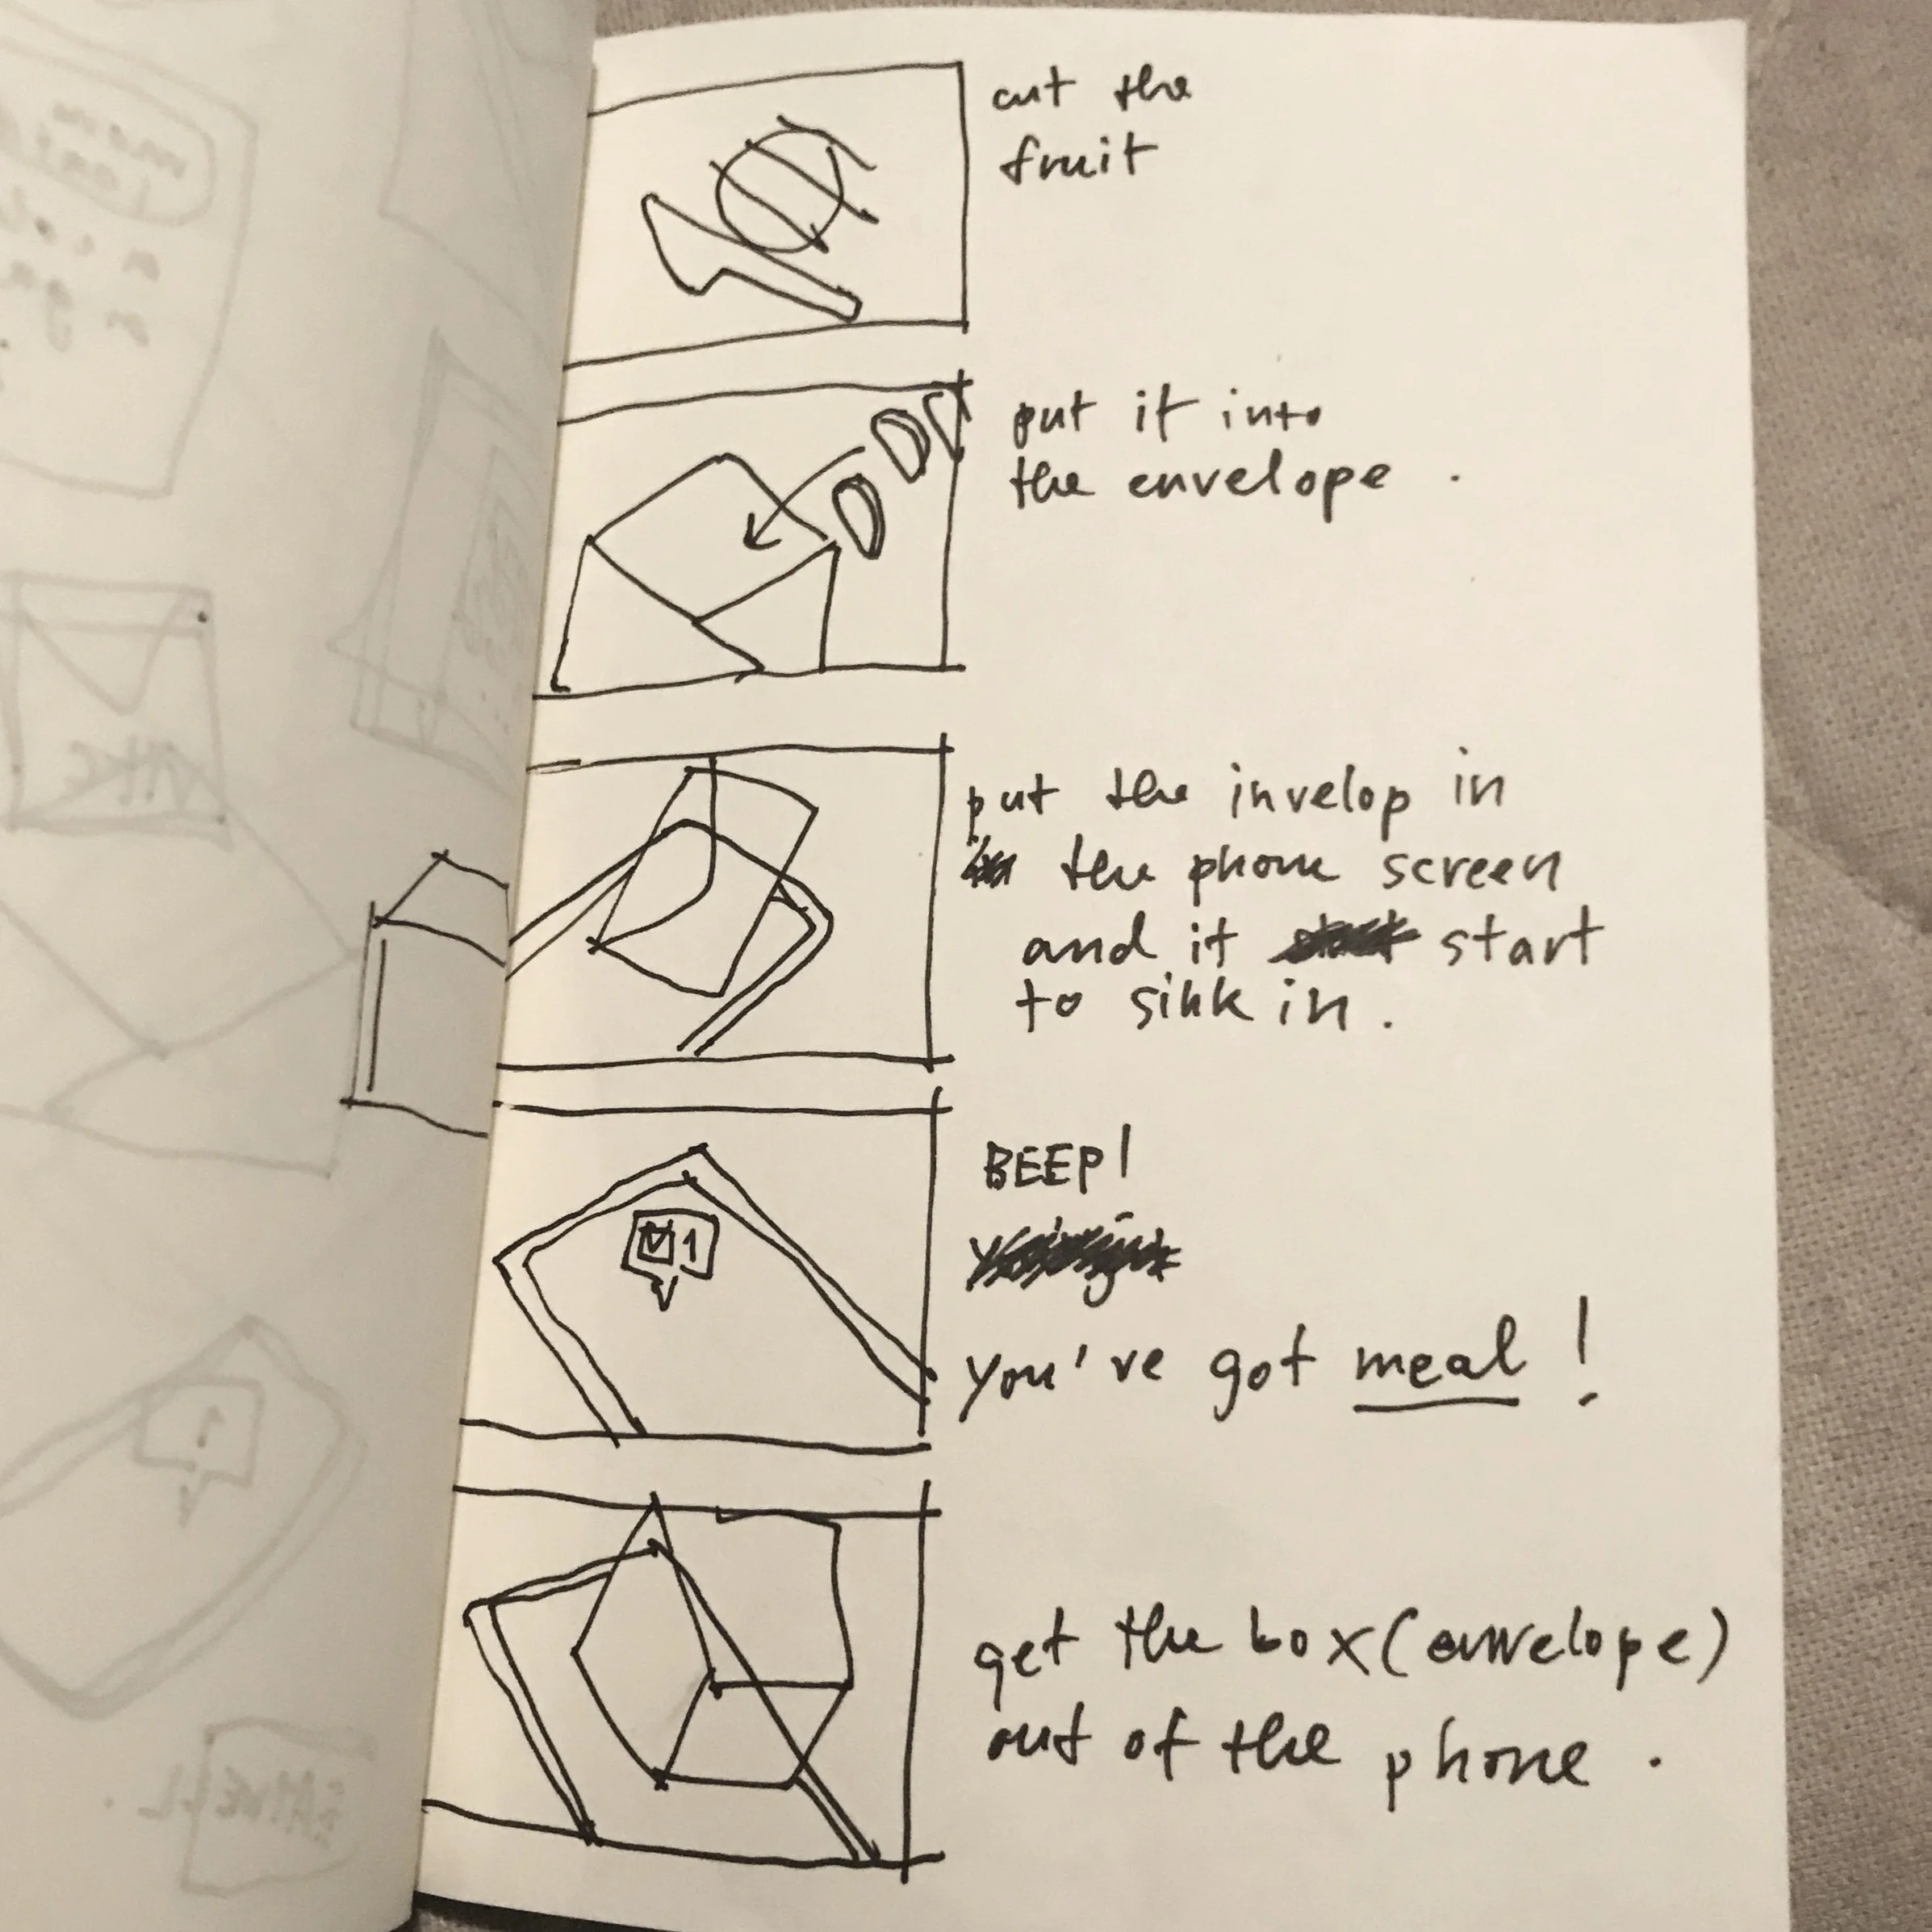 cut the
fruit
put it into
the envelope .
put the invelop in
the phone screen
and it start
to sink in .
BEEP!
1
you've got meal !
get the box (envelope)
out of the phone .